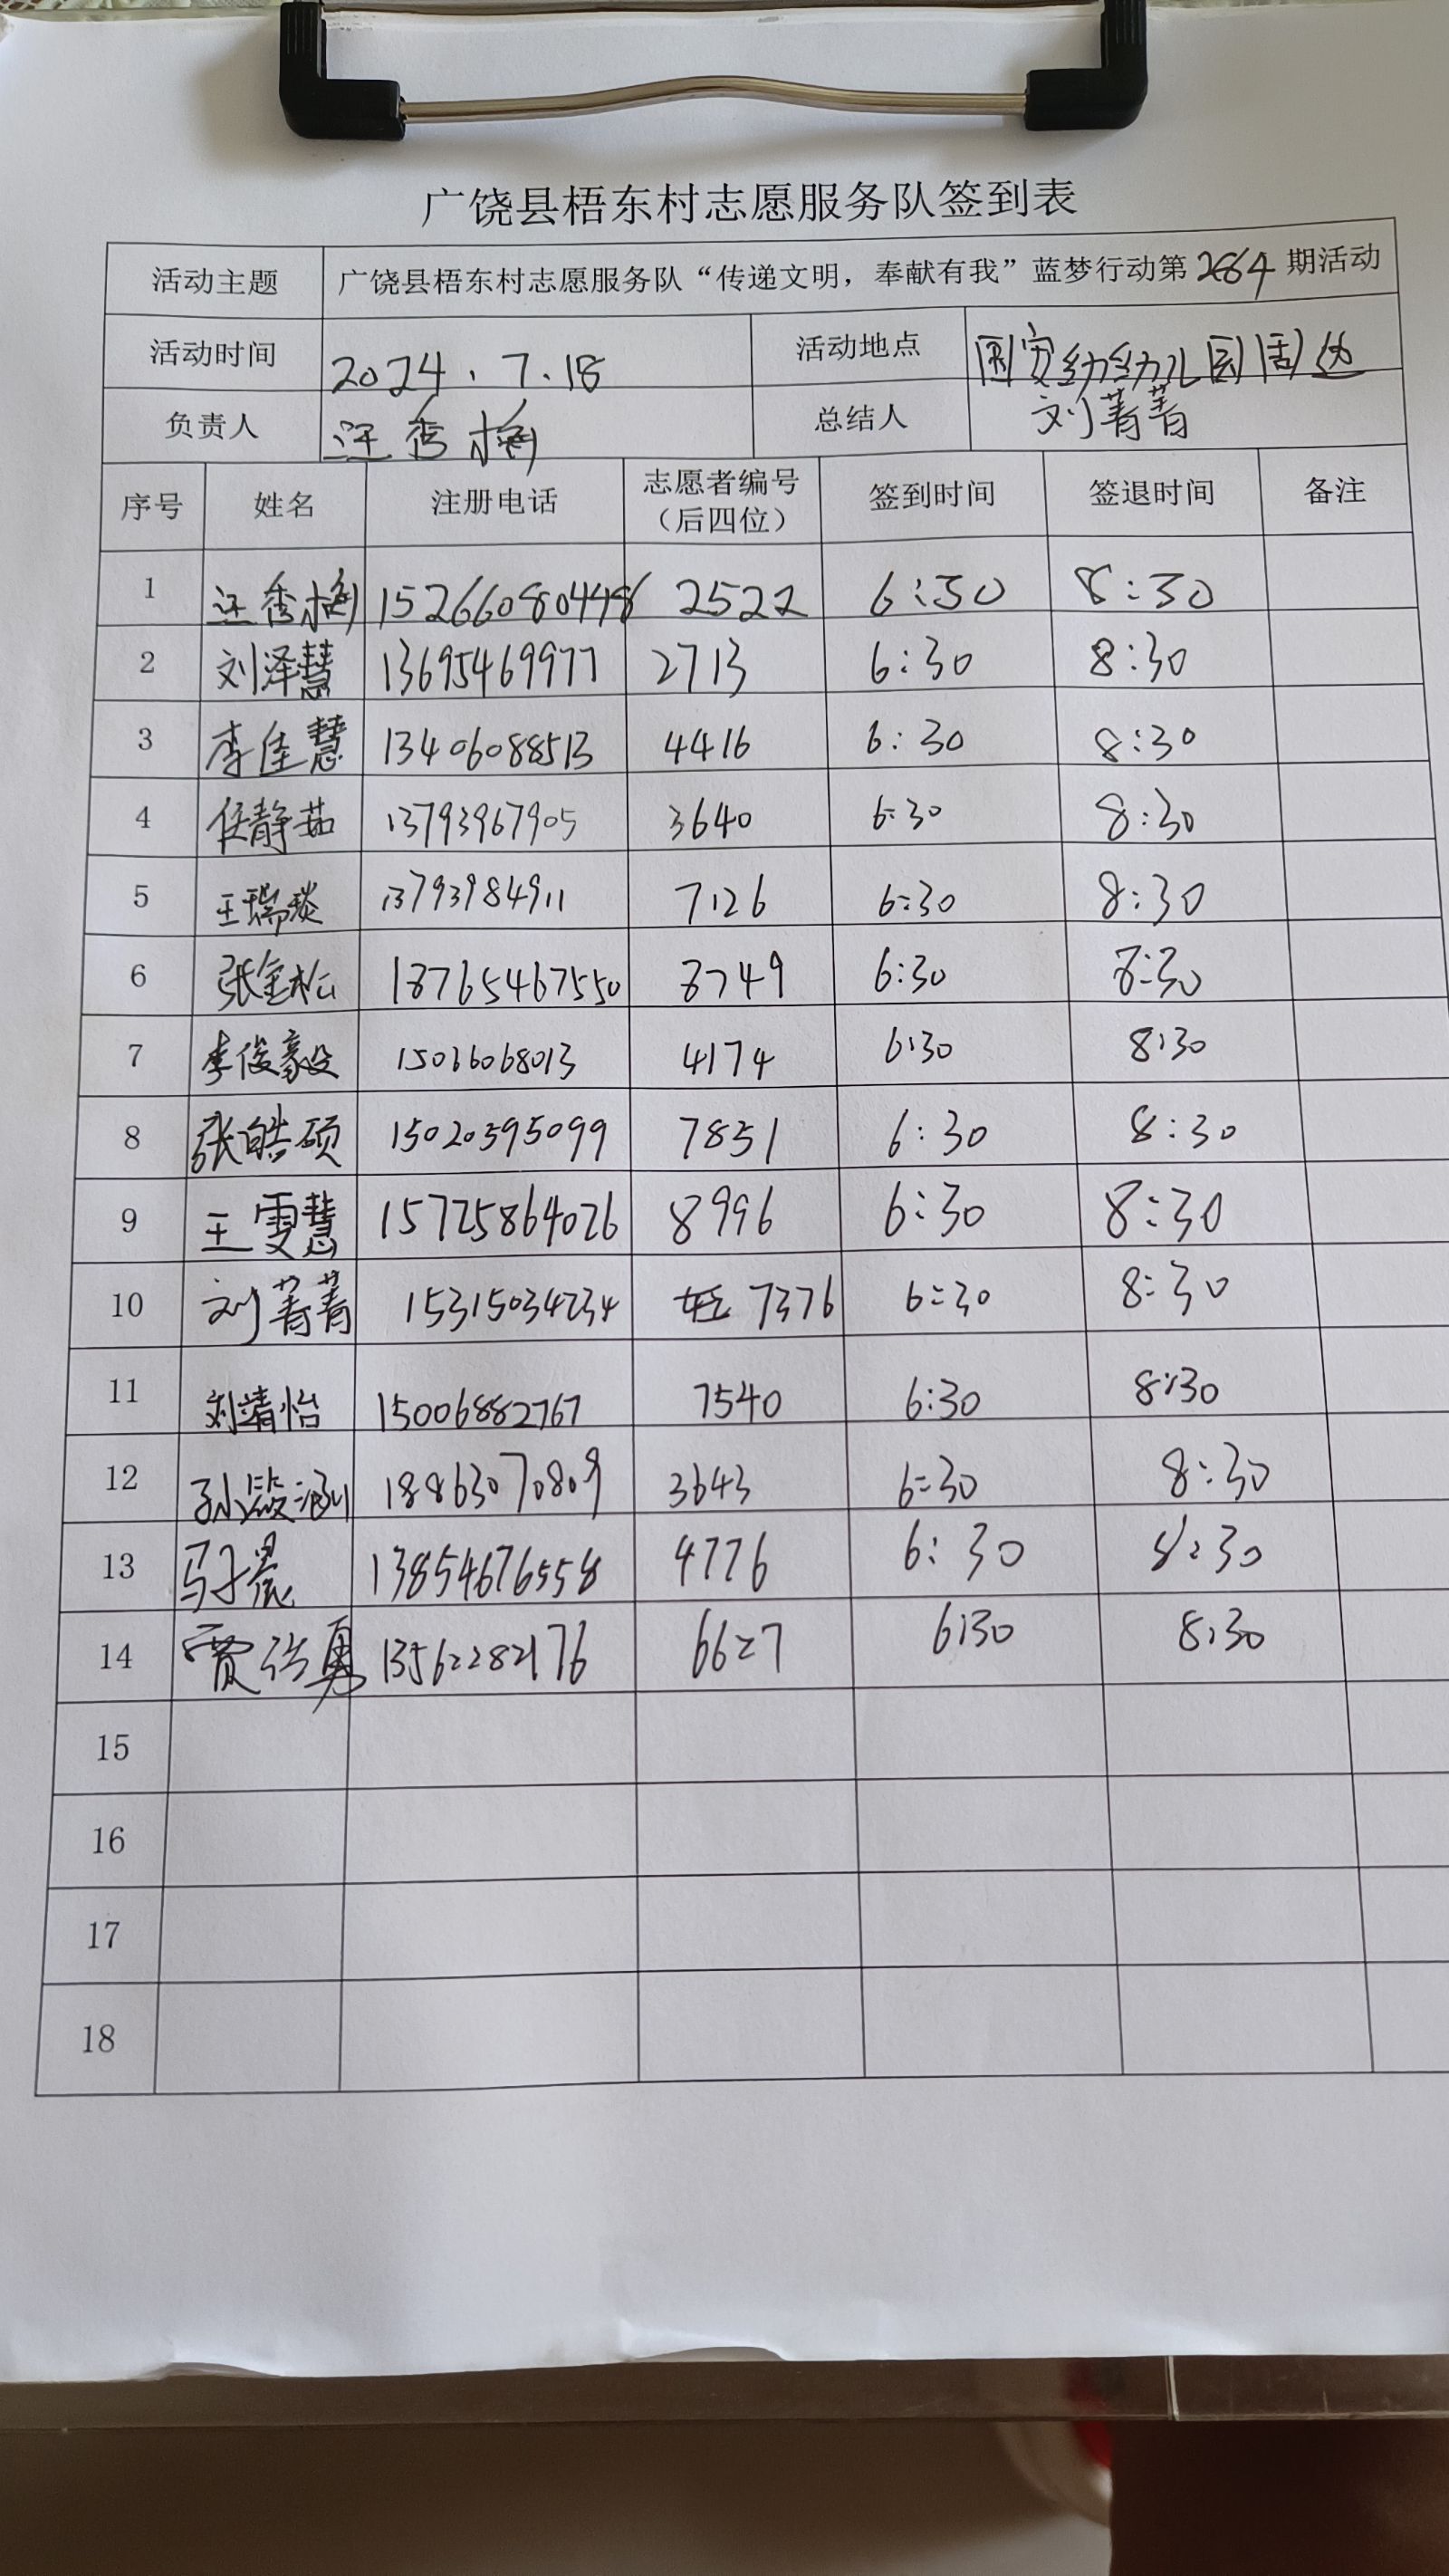 广饶县梧东村志愿服务队签到表
活动主题 广饶县梧东村志愿服务队“传递文明，奉献有我”蓝梦行动第264期活动
活动时间 2024.7.18 活动地点 国安幼幼儿园周边
负责人 汪秀梅 总结人 刘菁菁
序号 姓名 注册电话 志愿者编号（后四位） 签到时间 签退时间 备注
1 汪秀梅 15266080448 2522 6:30 8:30
2 刘泽慧 13695469977 2713 6:30 8:30
3 李佳慧 13406088513 4416 6:30 8:30
4 任静茹 13793967905 3640 6:30 8:30
5 王瑞琰 13793984911 7126 6:30 8:30
6 张金松 18765467550 8749 6:30 8:30
7 李俊毅 4174 6:30 8:30
8 张皓硕 15020595099 7851 6:30 8:30
9 王雯慧 15725864026 8996 6:30 8:30
10 刘菁菁 15315034234 7376 6:30 8:30
11 刘靖怡 15006882767 7540 6:30 8:30
12 18863070809 3643 6:30 8:30
13 马子晨 13854676558 4776 6:30 8:30
14 贾 勇 13562282176 6627 6:30 8:30
15
16
17
18